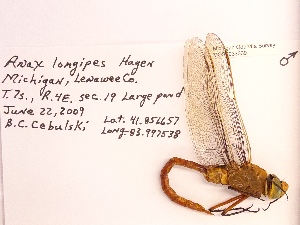 Anax longipes Hagen
Michigan, Lenawee Co.
T.7s., R.4E. sec. 19 Large pond
June 22, 2009
B.C. Cebulski
Lat. 41.856657
Long -83.997538
Survey
♂